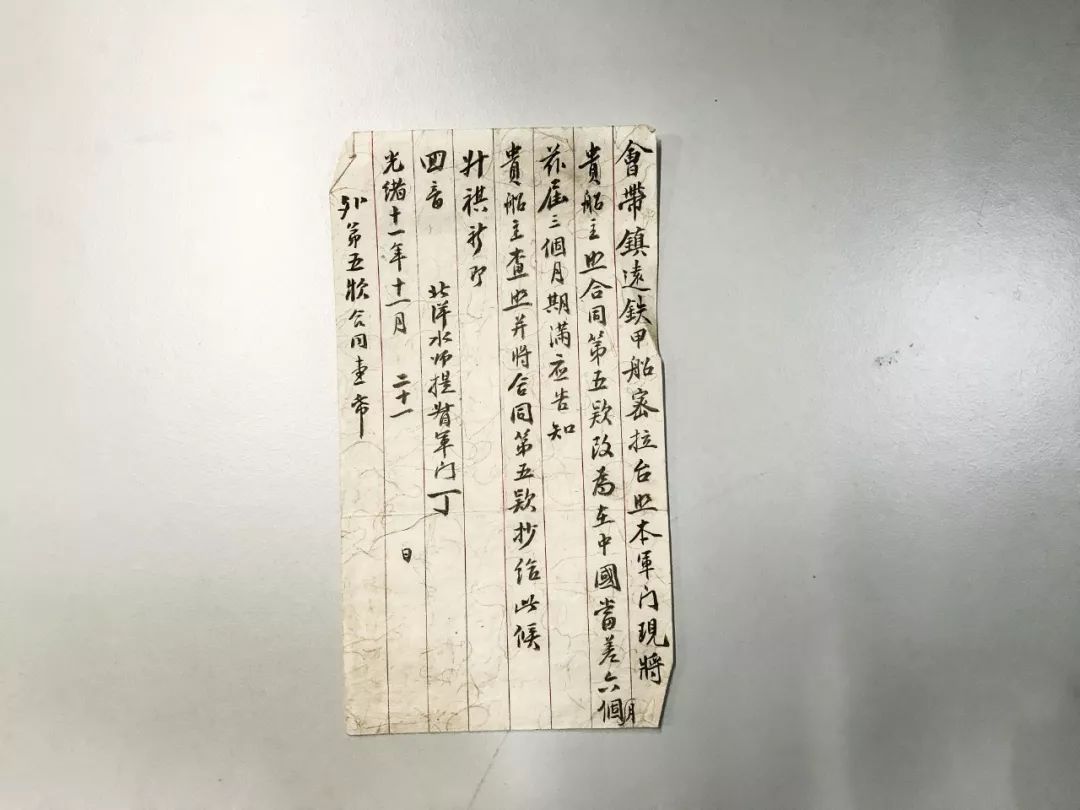 會帶鎮遠鉄甲船宻拉台照本軍门現將
貴船主照合同第五欵改為在中國當差六個月
茲届三個月期滿應告知
貴船主查照并將合同第五欵抄给此候
升祺祈即
回音
北洋水师提督军门丁
光緒十一年十一月 二十一 日
外第五欵合同壹帋